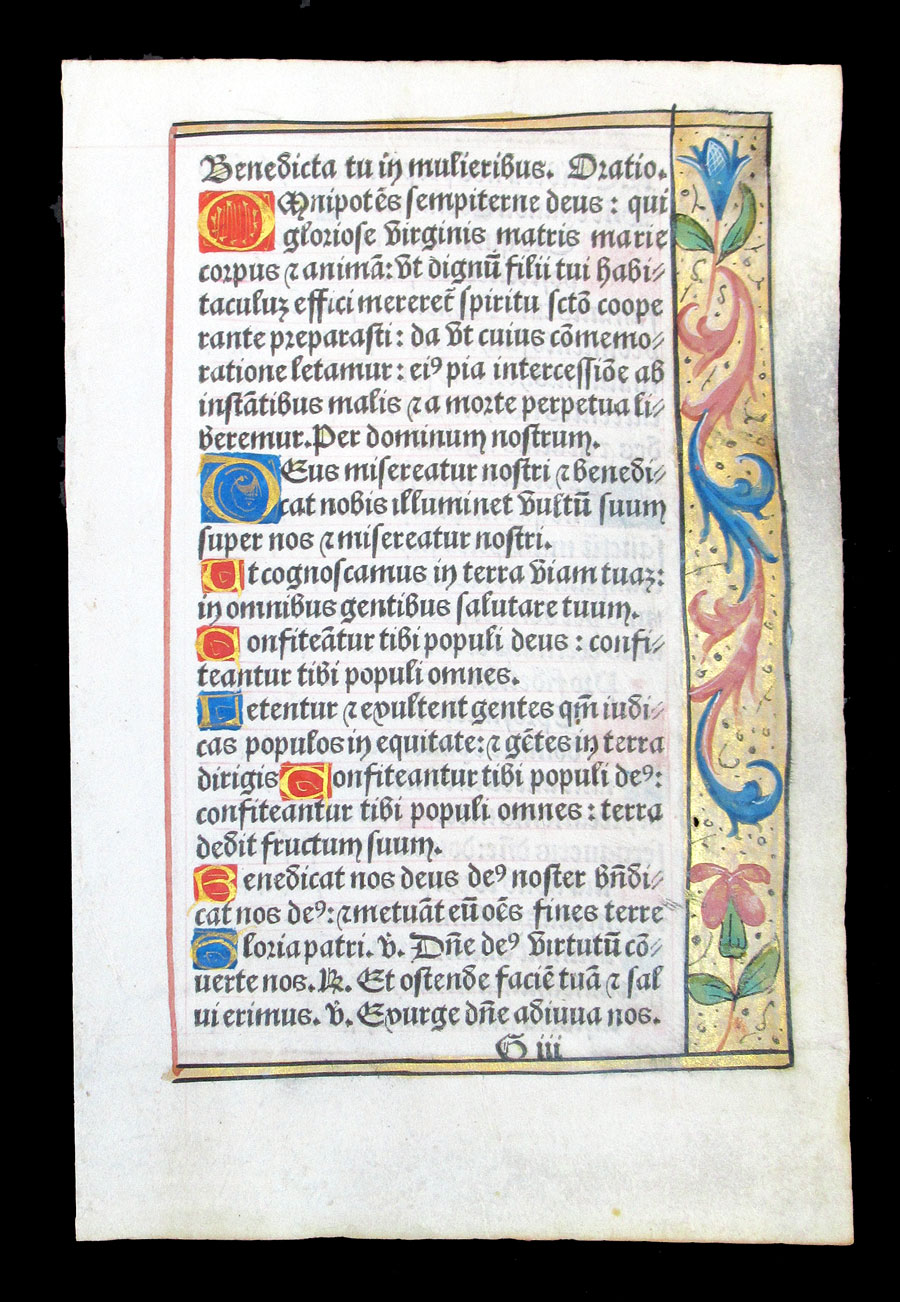 Benedicta tu in mulieribus. Oratio.
OMnipotēs sempiterne deus : qui
gloriose virginis matris marie
corpus ⁊ animā: vt dignū filii tui habi⸗
taculuꝫ effici mereret᷑ spiritu sctō coope
rante preparasti : da vt cuius cōmemo⸗
ratione letamur : eiꝰ pia intercessiōe ab
instātibus malis ⁊ a morte perpetua li⸗
beremur. Per dominum nostrum.
DEus misereatur nostri ⁊ benedi⸗
cat nobis illuminet vultū suum
super nos ⁊ misereatur nostri.
Ut cognoscamus in terra viam tuaꝫ:
in omnibus gentibus salutare tuum.
Confiteātur tibi populi deus : confi⸗
teantur tibi populi omnes.
Letentur ⁊ exultent gentes qm̄ iudi⸗
cas populos in equitate: ⁊ gētes in terra
dirigis Confiteantur tibi populi deꝰ:
confiteantur tibi populi omnes : terra
dedit fructum suum.
Benedicat nos deus deꝰ noster bn̄di⸗
cat nos deꝰ: ⁊ metuāt eū oēs fines terre
Gloria patri. ꝟ. Dn̄e deꝰ virtutū cō⸗
uerte nos. ℟. Et ostende faciē tuā ⁊ sal
ui erimus. ꝟ. Exurge dn̄e adiuua nos.
G iii